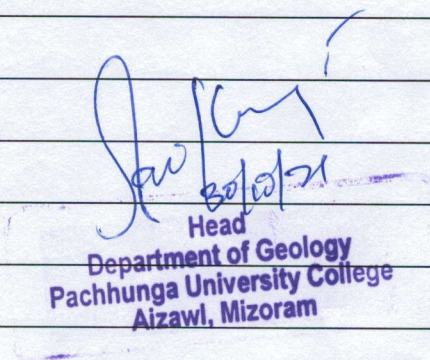 30/10/21
Head
Department of Geology
Pachhunga University College
Aizawl, Mizoram